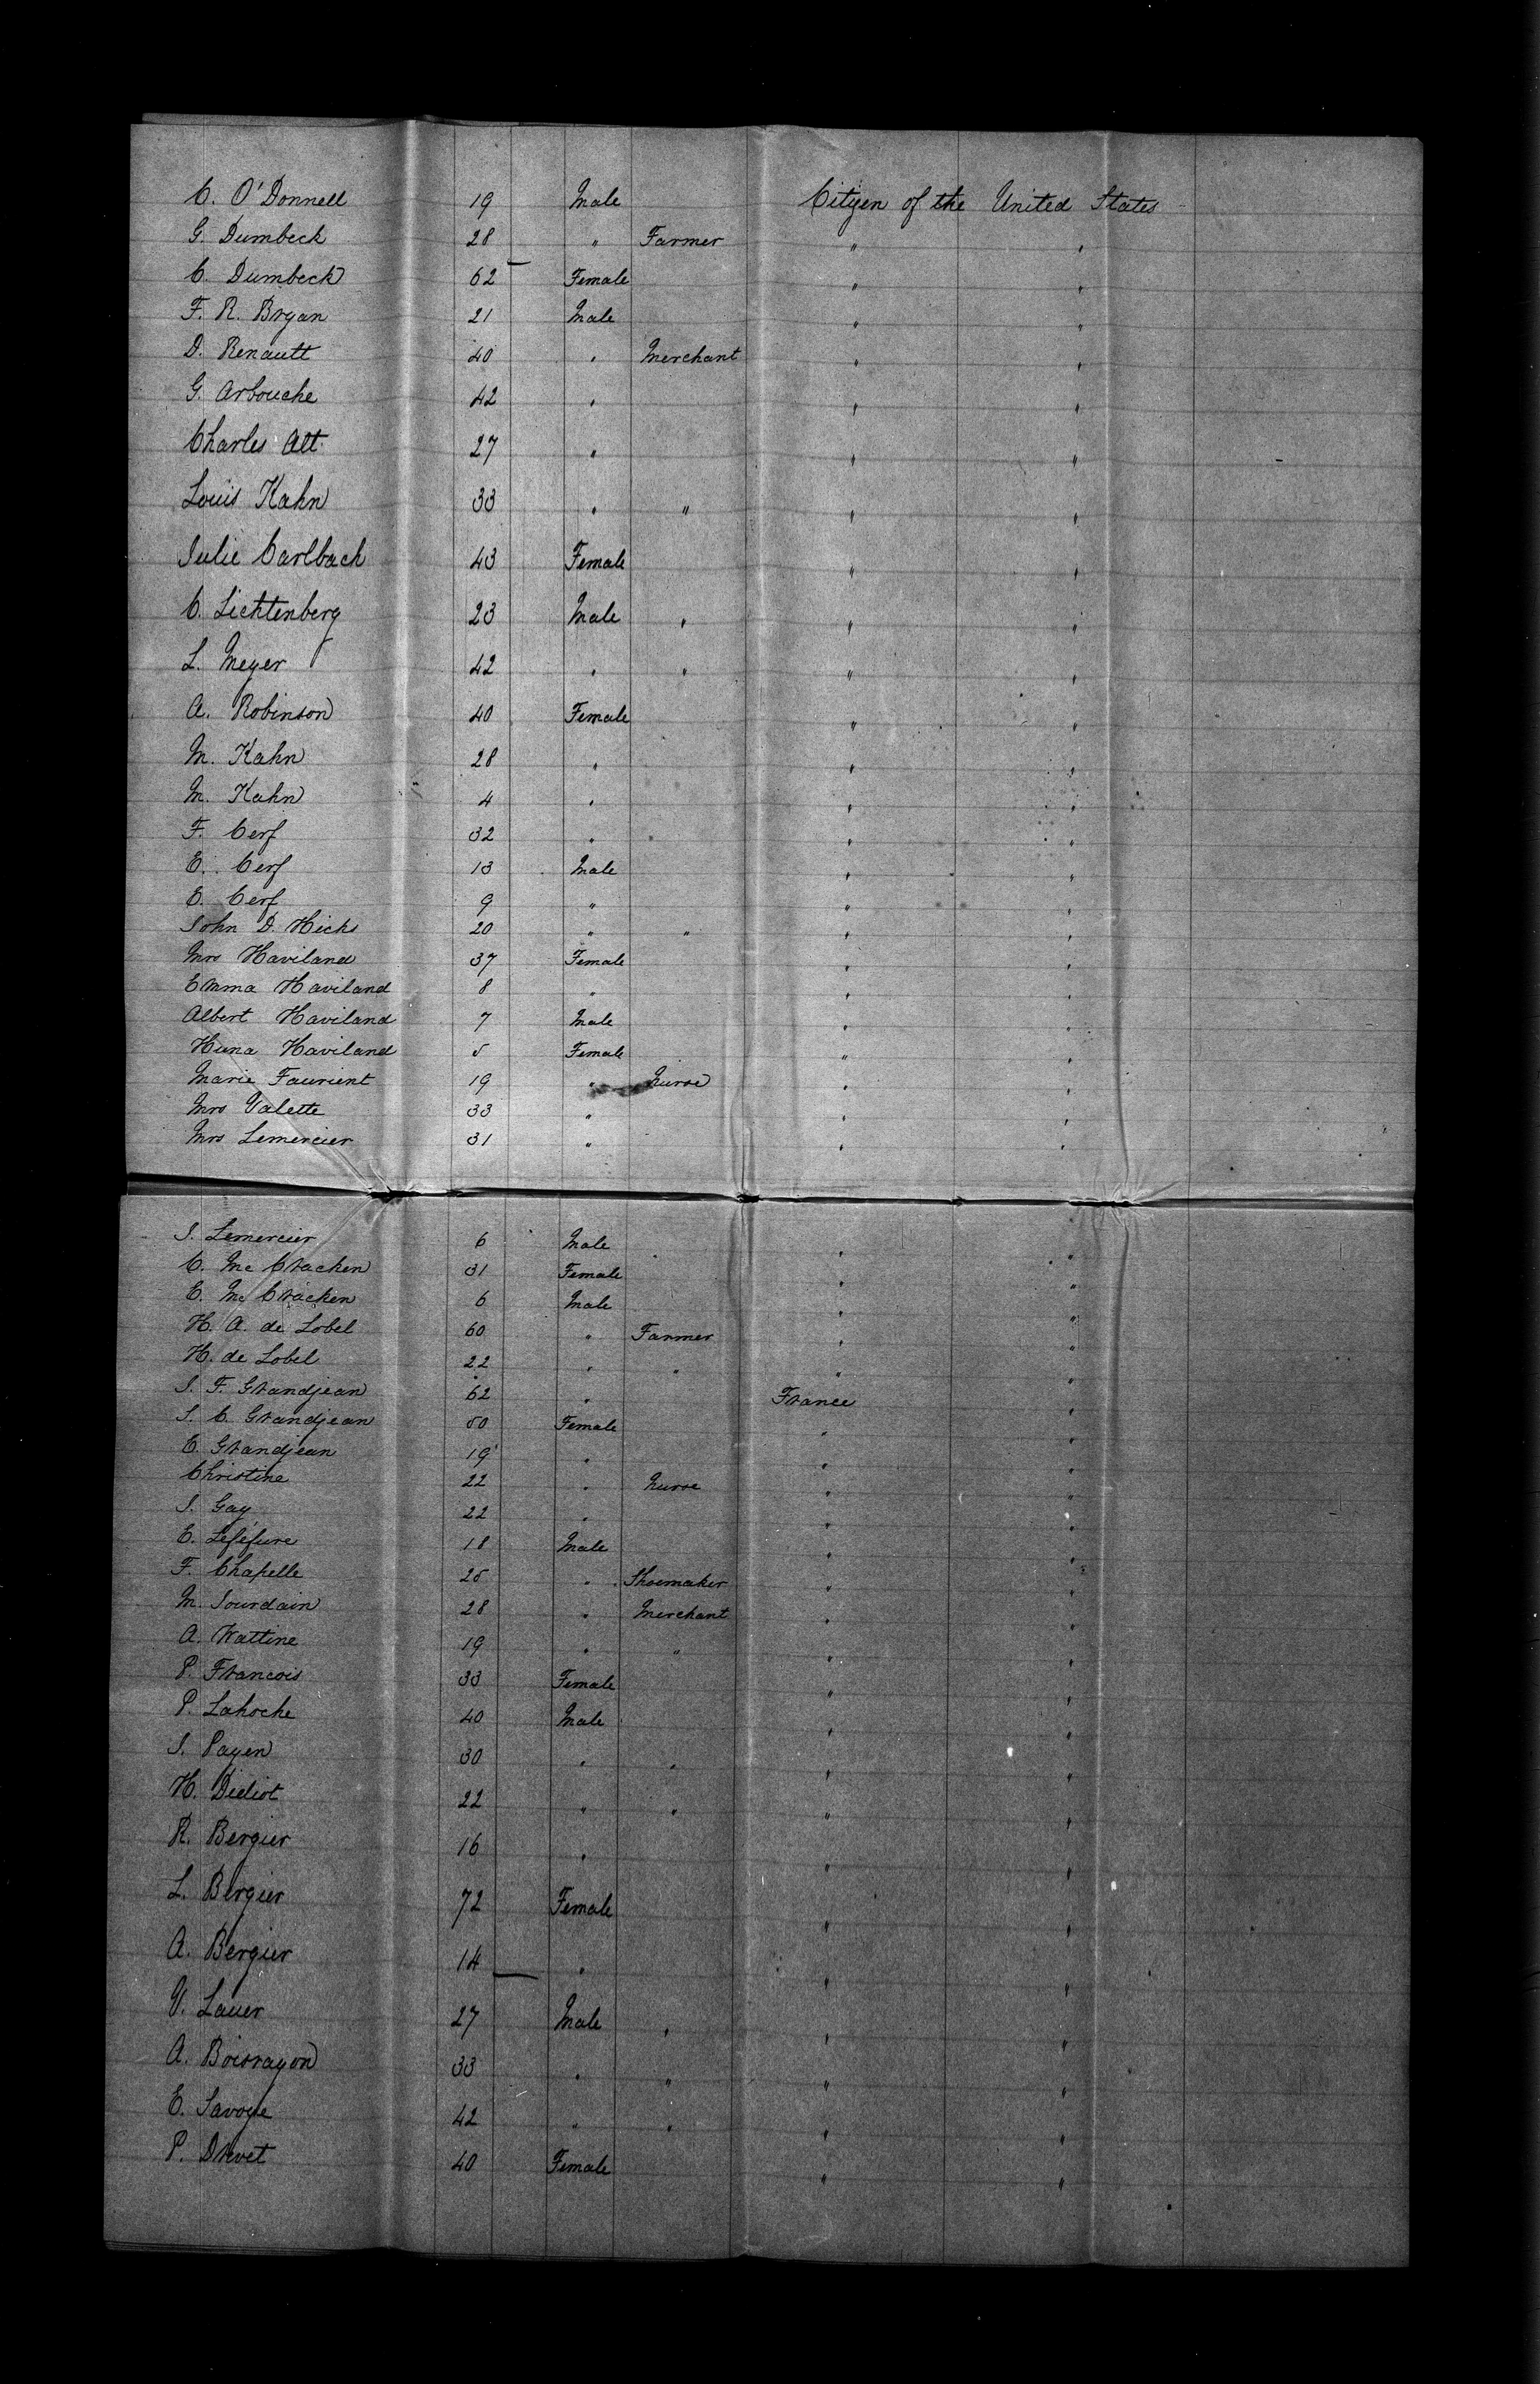 C. O'Donnell 19 Male Citizen of the United States
G. Dumbeck 28 " Farmer " "
C. Dumbeck 62 Female " "
F. R. Bryan 21 Male " "
D. Renault 40 " Merchant " "
G. Arbouche 42 " " "
Charles Alt. 27 " " "
Louis Kahn 33 " " " "
Julie Carlbach 43 Female " "
C. Lichtenberg 23 Male " " "
L. Meyer 42 " " " "
A. Robinson 40 Female " "
M. Kahn 28 " " "
M. Kahn 4 " " "
F. Cerf 32 " " "
E. Cerf 13 Male " "
E. Cerf 9 " " "
John D. Hicks 20 " " " "
Mrs Haviland 37 Female " "
Emma Haviland 8 " " "
Albert Haviland 7 Male " "
Huna Haviland 5 Female " "
Marie Faurient 19 " Nurse " "
Mrs Valette 33 " " "
Mrs Lemercier 31 " " "
J. Lemercier 6 Male " "
C. Mc Cracken 31 Female " "
E. Mc Cracken 6 Male " "
H. A. de Lobel 60 " Farmer " "
H. de Lobel 22 " " " "
J. F. Grandjean 62 " France "
J. C. Grandjean 50 Female " "
E. Grandjean 19 " " "
Christine 22 " Nurse " "
J. Gay 22 " " "
E. Leféfure 18 Male " "
F. Chapelle 25 " Shoemaker " "
M. Jourdain 28 " Merchant " "
A. Wattine 19 " " " "
P. Francois 33 Female " "
P. Lahoche 40 Male " "
J. Payen 30 " " " "
H. Didiot 22 " " " "
R. Bergier 16 " " "
L. Bergier 72 Female " "
A. Bergier 14 " " "
V. Lauer 27 Male " " "
A. Boisrayon 33 " " " "
E. Savoye 42 " " " "
P. Drevet 40 Female " "